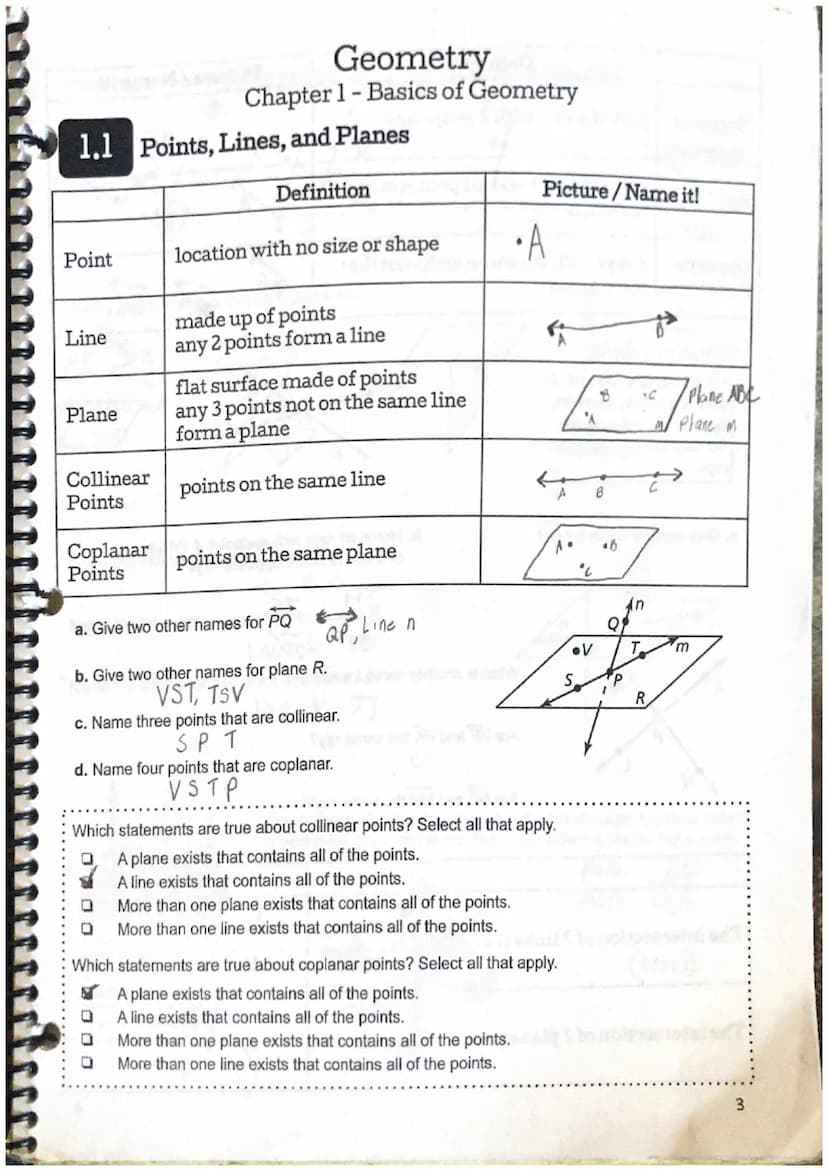 Geometry
Chapter 1 - Basics of Geometry
1.1 Points, Lines, and Planes
Definition Picture / Name it!
Point location with no size or shape • A
Line made up of points
any 2 points form a line
A B
Plane flat surface made of points
any 3 points not on the same line
form a plane
B C Plane ABC
A M Plane m
Collinear
Points
points on the same line
A B C
Coplanar
Points
points on the same plane
A B
C
a. Give two other names for PQ QP, Line n
b. Give two other names for plane R.
VST, TSV
c. Name three points that are collinear.
S P T
d. Name four points that are coplanar.
V S T P
n
Q
V T m
S P
R
Which statements are true about collinear points? Select all that apply.
A plane exists that contains all of the points.
A line exists that contains all of the points.
More than one plane exists that contains all of the points.
More than one line exists that contains all of the points.
Which statements are true about coplanar points? Select all that apply.
A plane exists that contains all of the points.
A line exists that contains all of the points.
More than one plane exists that contains all of the points.
More than one line exists that contains all of the points.
3